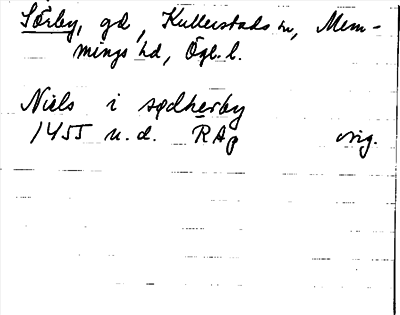 Sörby, gd, Kullerstads sn, Mem-
mings hd, Ögl. l.
Niels i sødherby
1455 u.d. RAp orig.